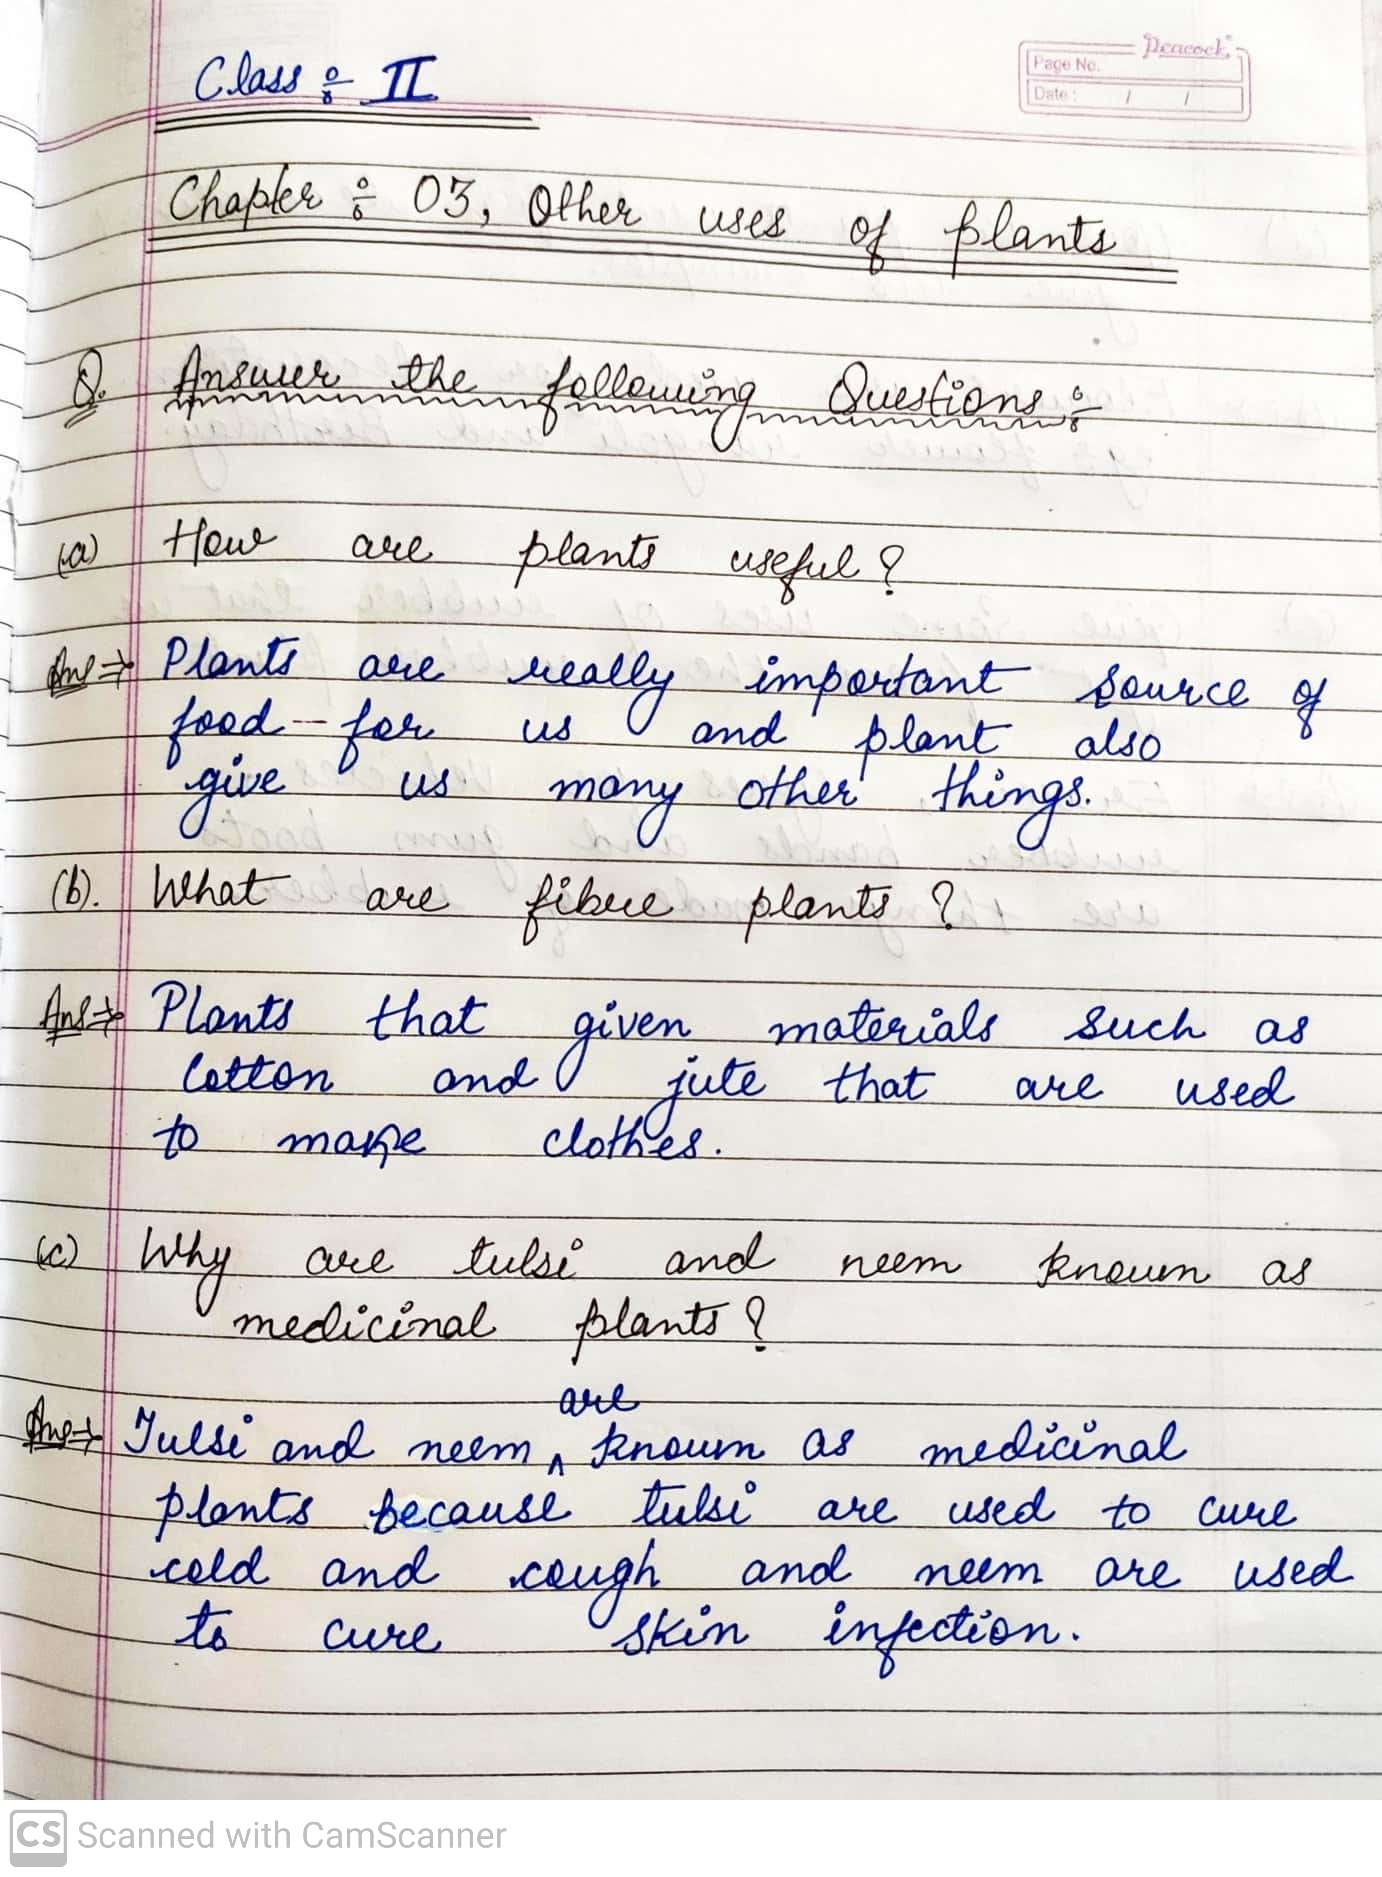 Peacock
Page No.
Date : / /
Class :- II
Chapter :- 03, Other uses of plants
Q. Answer the following Questions :-
(a) How are plants useful ?
Ans → Plants are really important source of
food -- for us and plant also
give us many other things.
(b). What are fibre plants ?
Ans → Plants that given materials such as
Cotton and jute that are used
to make clothes.
(c) Why are tulsi and neem known as
medicinal plants ?
are
Ans → Tulsi and neem ^ known as medicinal
plants because tulsi are used to cure
cold and cough and neem are used
to cure skin infection.
CS Scanned with CamScanner